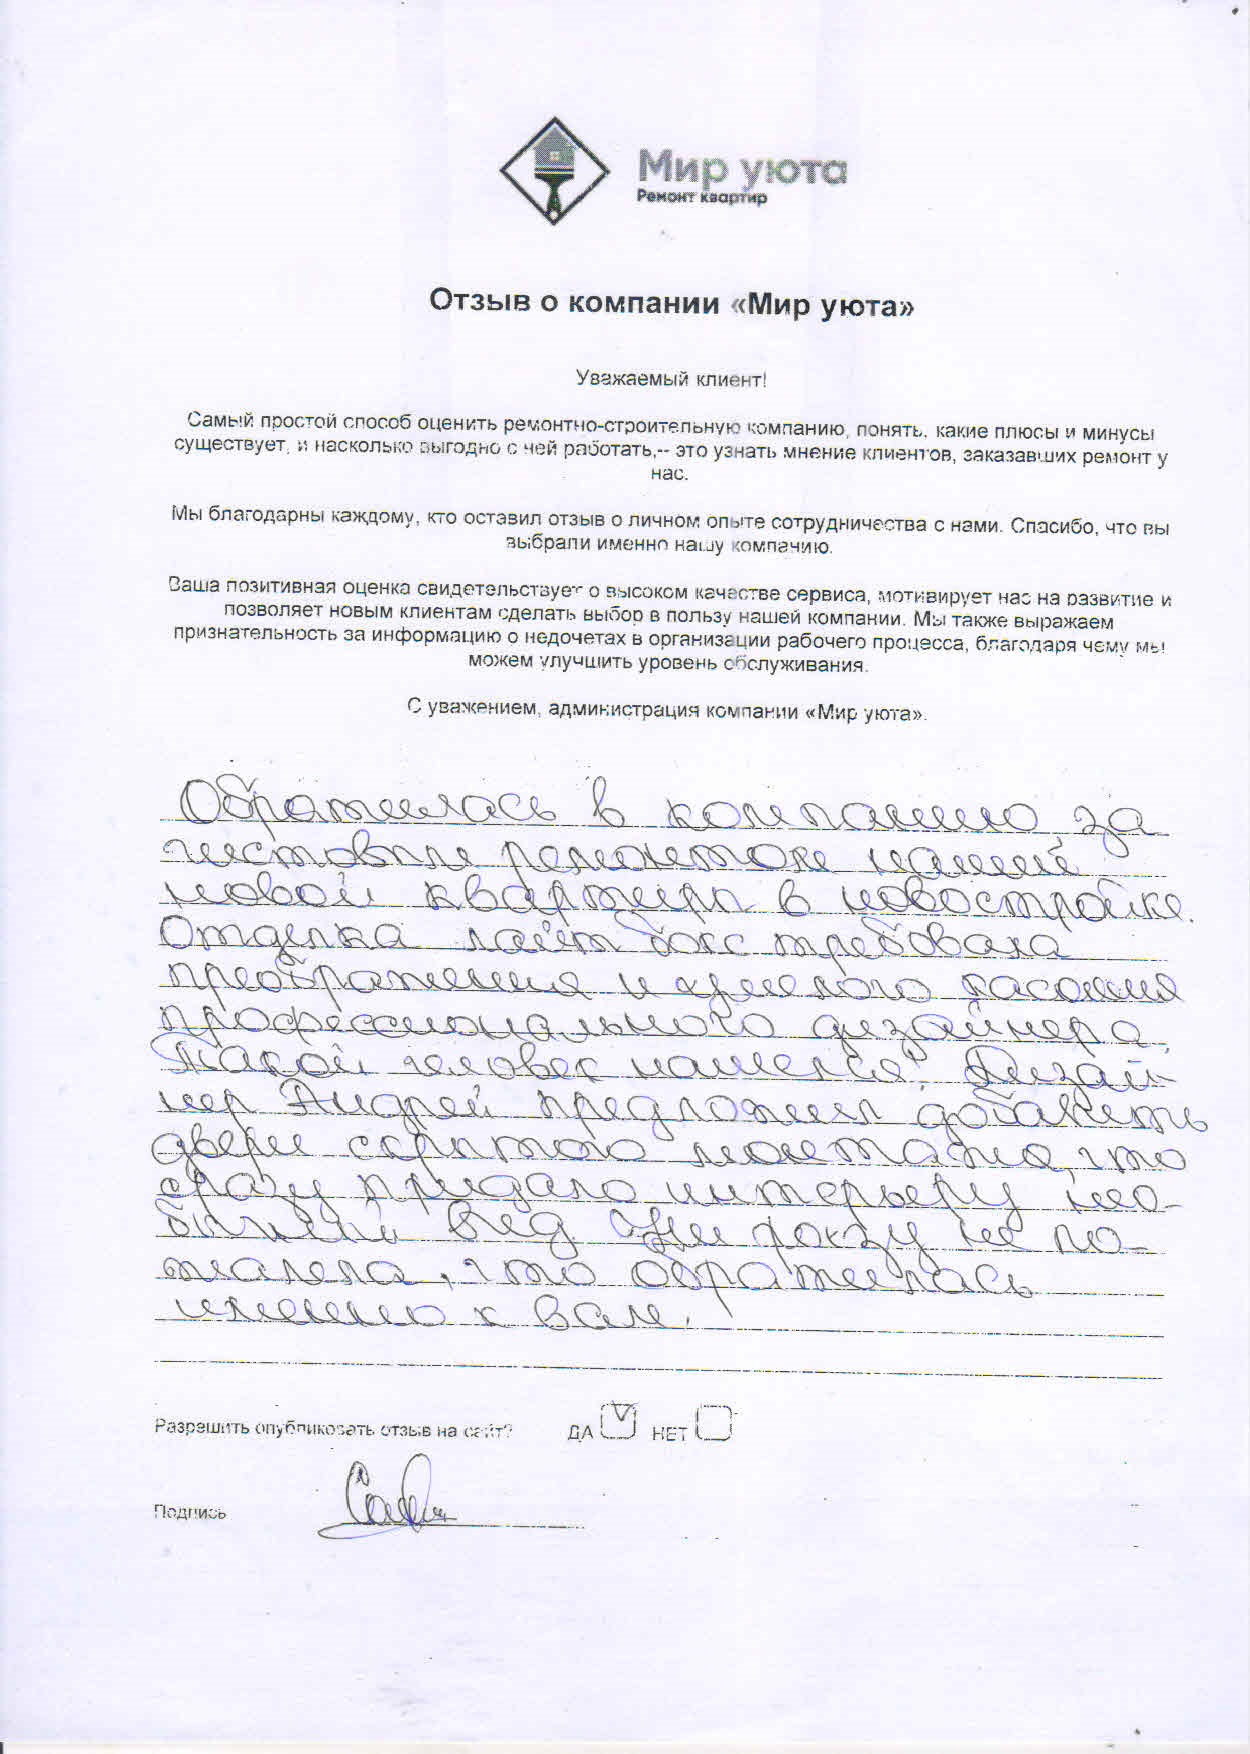 Мир уюта
Ремонт квартир
Отзыв о компании «Мир уюта»
Уважаемый клиент!
Самый простой способ оценить ремонтно-строительную компанию, понять, какие плюсы и минусы
существует, и насколько выгодно с ней работать,-- это узнать мнение клиентов, заказавших ремонт у
нас.
Мы благодарны каждому, кто оставил отзыв о личном опыте сотрудничества с нами. Спасибо, что вы
выбрали именно нашу компанию.
Ваша позитивная оценка свидетельствует о высоком качестве сервиса, мотивирует нас на развитие и
позволяет новым клиентам сделать выбор в пользу нашей компании. Мы также выражаем
признательность за информацию о недочетах в организации рабочего процесса, благодаря чему мы
можем улучшить уровень обслуживания.
С уважением, администрация компании «Мир уюта».
Обратилась в компанию за
чистовым ремонтом нашей
новой квартиры в новостройке.
Отделка лайт бокс требовала
преображения и умелого касания
профессионального дизайнера.
Такой человек нашелся. Дизай-
нер Андрей предложил добавить
двери скрытого монтажа, что
сразу придало интерьеру не-
бычный вид. Ни разу не по-
жалела, что обратилась
именно к вам.
Разрешить опубликовать отзыв на сайт? ДА V НЕТ
Подпись